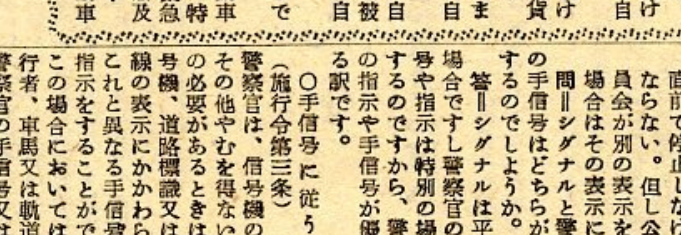 け
自
け
貨
ま
自
自
被
自
で
車
特
急
及
車
直前で停止しなけ
ならない。但し公
員会が別の表示を
場合はその表示に
問=シグナルと警
の手信号はどちらが
するのでしようか。
答=シグナルは平
場合ですし警察官の
号や指示は特別の場
するのですから、警
の指示や手信号が優
る訳です。
○手信号に従う
(施行令第三条)
警察官は、信号機の
その他やむを得ない
の必要があるときは
号機、道路標識又は
線の表示にかかわら
これと異なる手信号
指示をすることがで
この場合においては
行者、車馬又は軌道
警察官の手信号又は